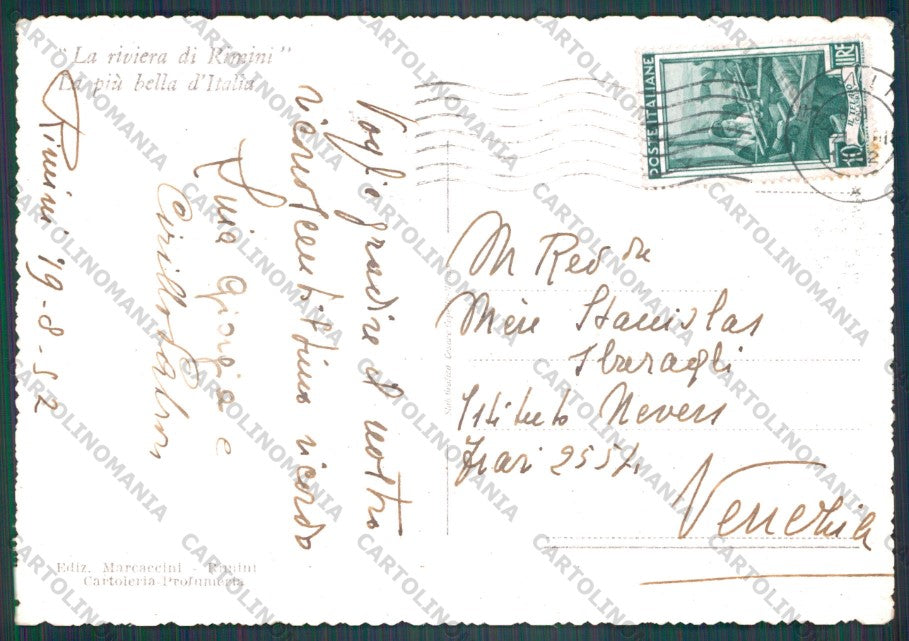 "La riviera di Rimini"
La più bella d'Italia
Rimini 19-8-52
Voglia gradire il nostro
riconoscentissimo ricordo
Giorgia e
Cirillo
POSTE ITALIANE
LIRE
10
M Red
Mère Stanislas
Sbaragli
Istituto Nevers
Frari 2554
Venezia
Ediz. Marcaccini - Rimini
Cartoleria-Profumeria
CARTOLINOMANIA